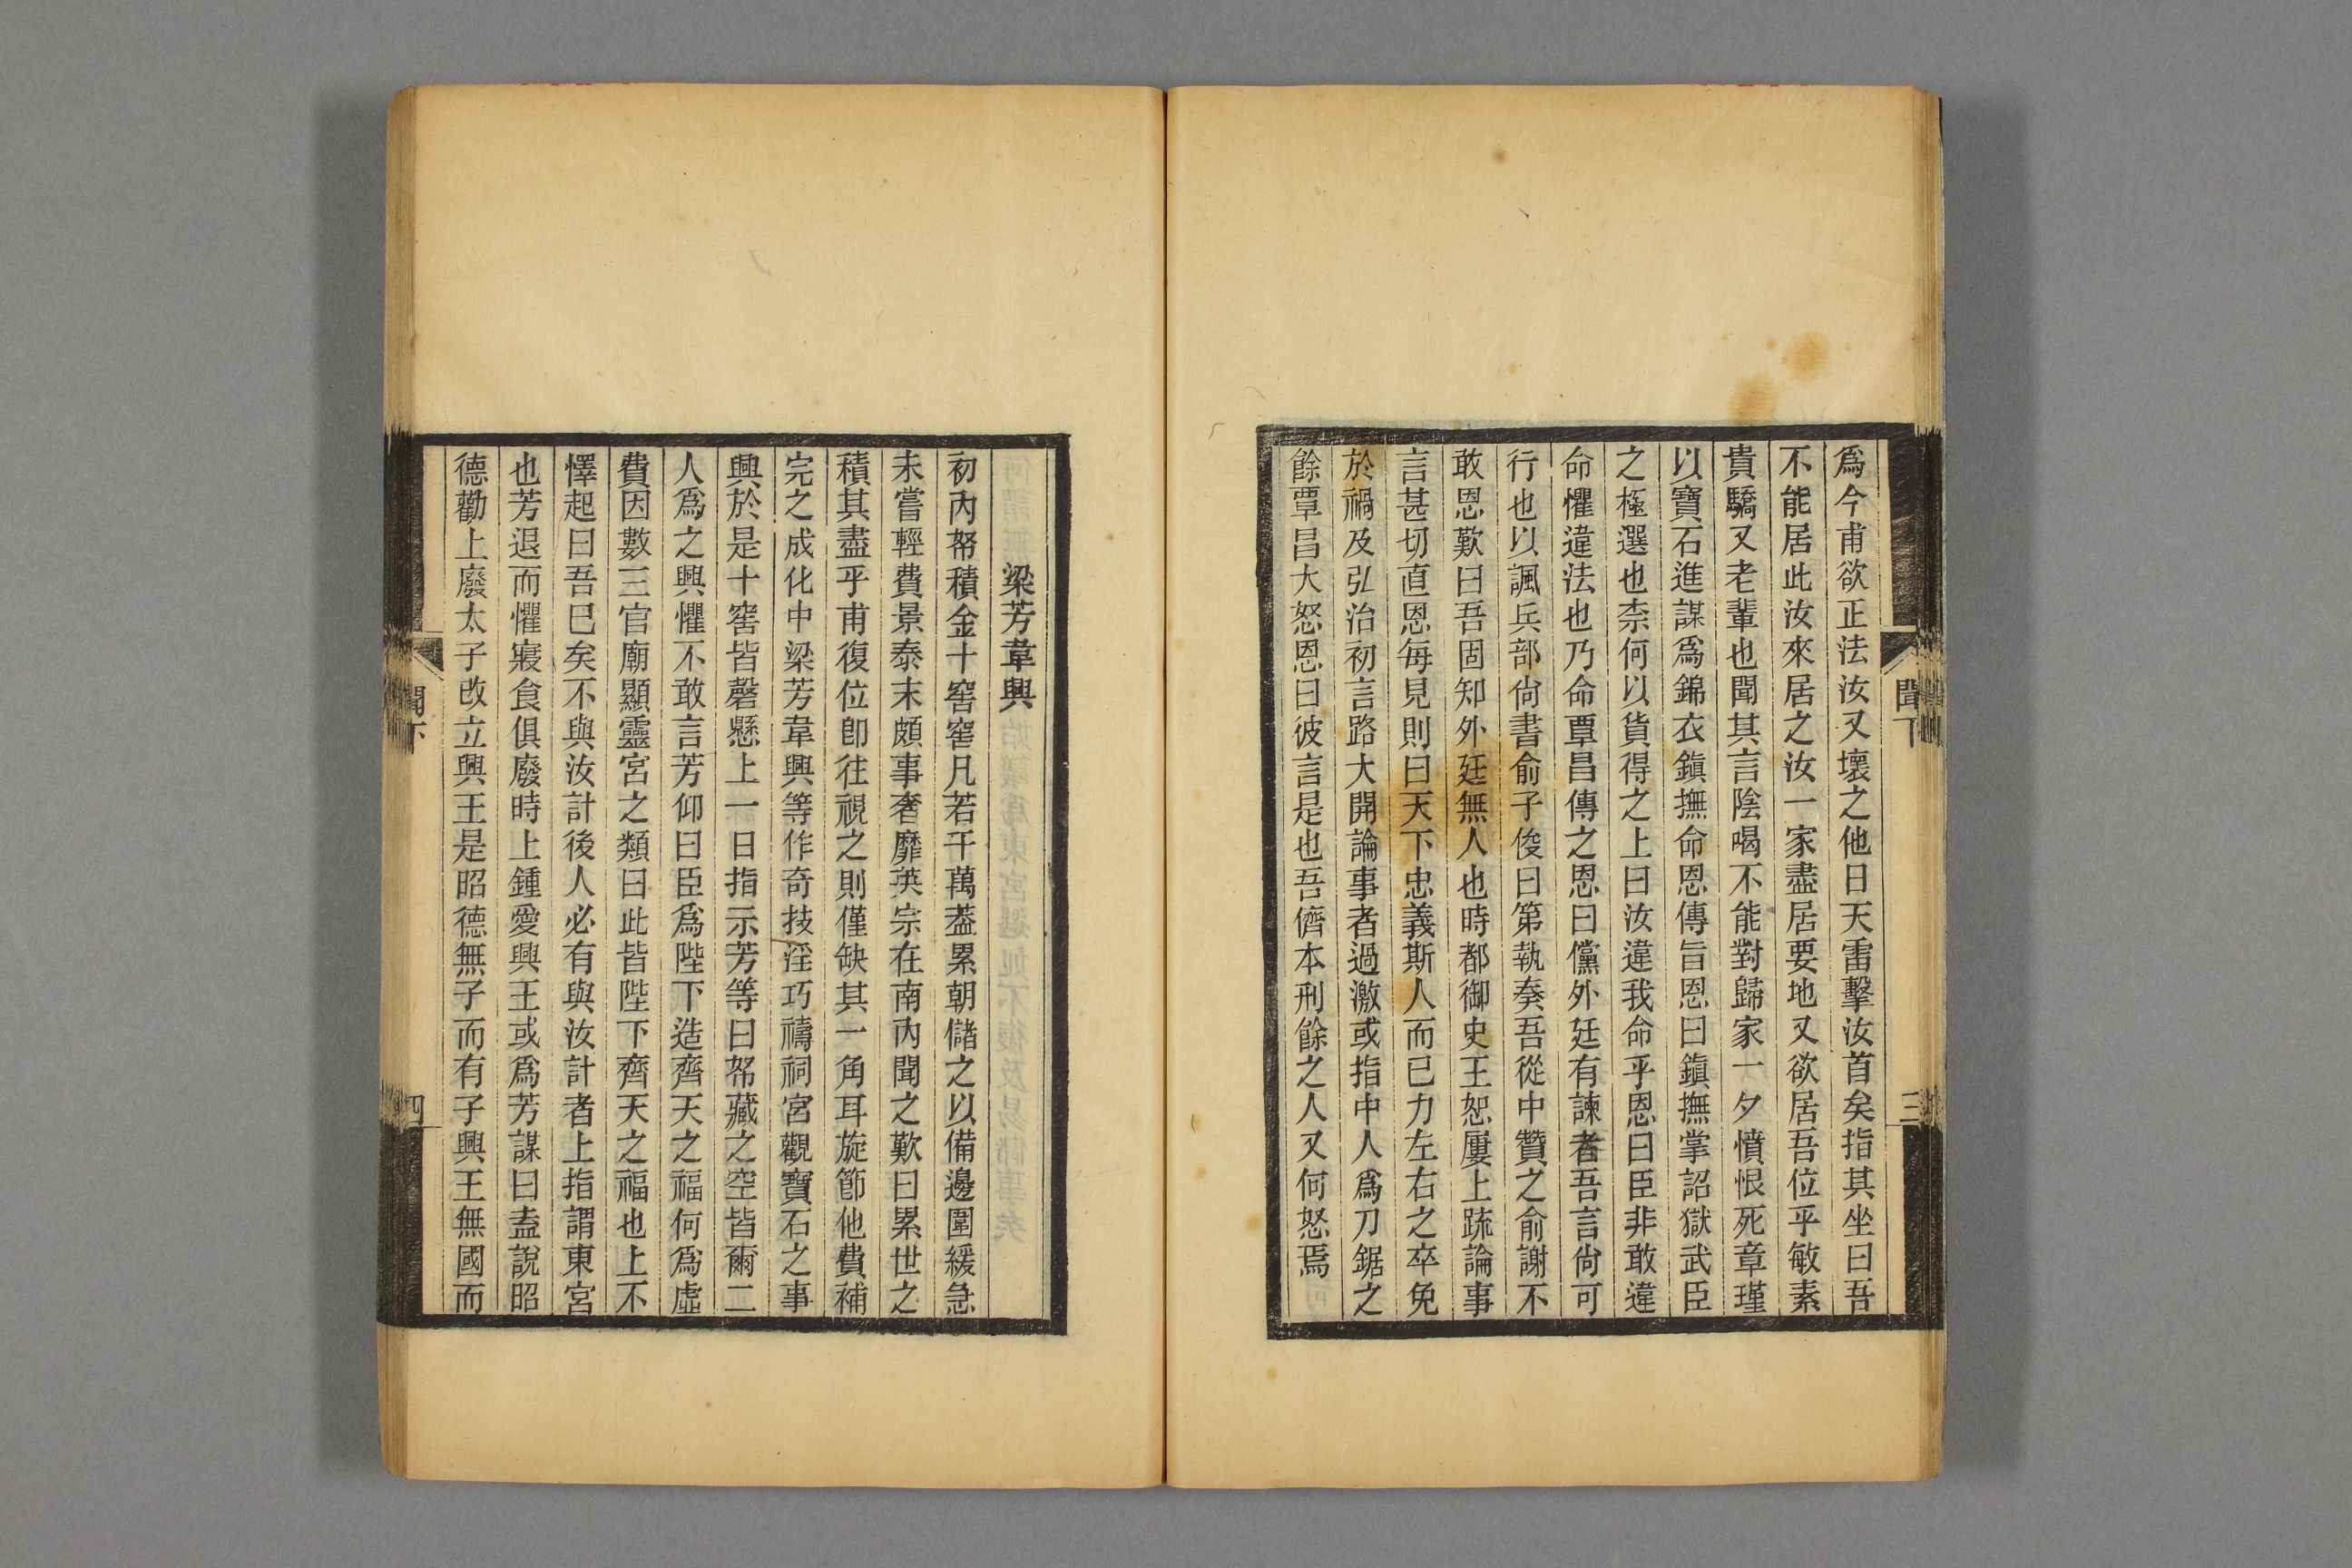 爲今甫欲正法汝又壞之他日天雷擊汝首矣指其坐曰吾
不能居此汝來居之汝一家盡居要地又欲居吾位乎敏素
貴驕又老輩也聞其言陰喝不能對歸家一夕憤恨死章瑾
以寶石進謀爲錦衣鎭撫命恩傳旨恩曰鎭撫掌詔獄武臣
之極選也柰何以貨得之上曰汝違我命乎恩曰臣非敢違
命懼違法也乃命覃昌傳之恩曰儻外廷有諫者吾言尙可
行也以諷兵部尙書俞子俊曰第執奏吾從中贊之俞謝不
敢恩歎曰吾固知外廷無人也時都御史王恕屢上疏論事
言甚切直恩每見則曰天下忠義斯人而已力左右之卒免
於禍及弘治初言路大開論事者過激或指中人爲刀鋸之
餘覃昌大怒恩曰彼言是也吾儕本刑餘之人又何怒焉
聞下
三
梁芳韋興
初內帑積金十窖窖凡若干萬葢累朝儲之以備邊圉緩急
未嘗輕費景泰末頗事奢靡英宗在南內聞之歎曰累世之
積其盡乎甫復位卽往視之則僅缺其一角耳旋節他費補
完之成化中梁芳韋興等作奇技淫巧禱祠宮觀寶石之事
興於是十窖皆罄懸上一日指示芳等曰帑藏之空皆爾二
人爲之興懼不敢言芳仰曰臣爲陛下造齊天之福何爲虛
費因數三官廟顯靈宮之類曰此皆陛下齊天之福也上不
懌起曰吾巳矣不與汝計後人必有與汝計者上指謂東宮
也芳退而懼寢食俱廢時上鍾愛興王或爲芳謀曰盍說昭
德勸上廢太子改立興王是昭德無子而有子興王無國而
聞下
四